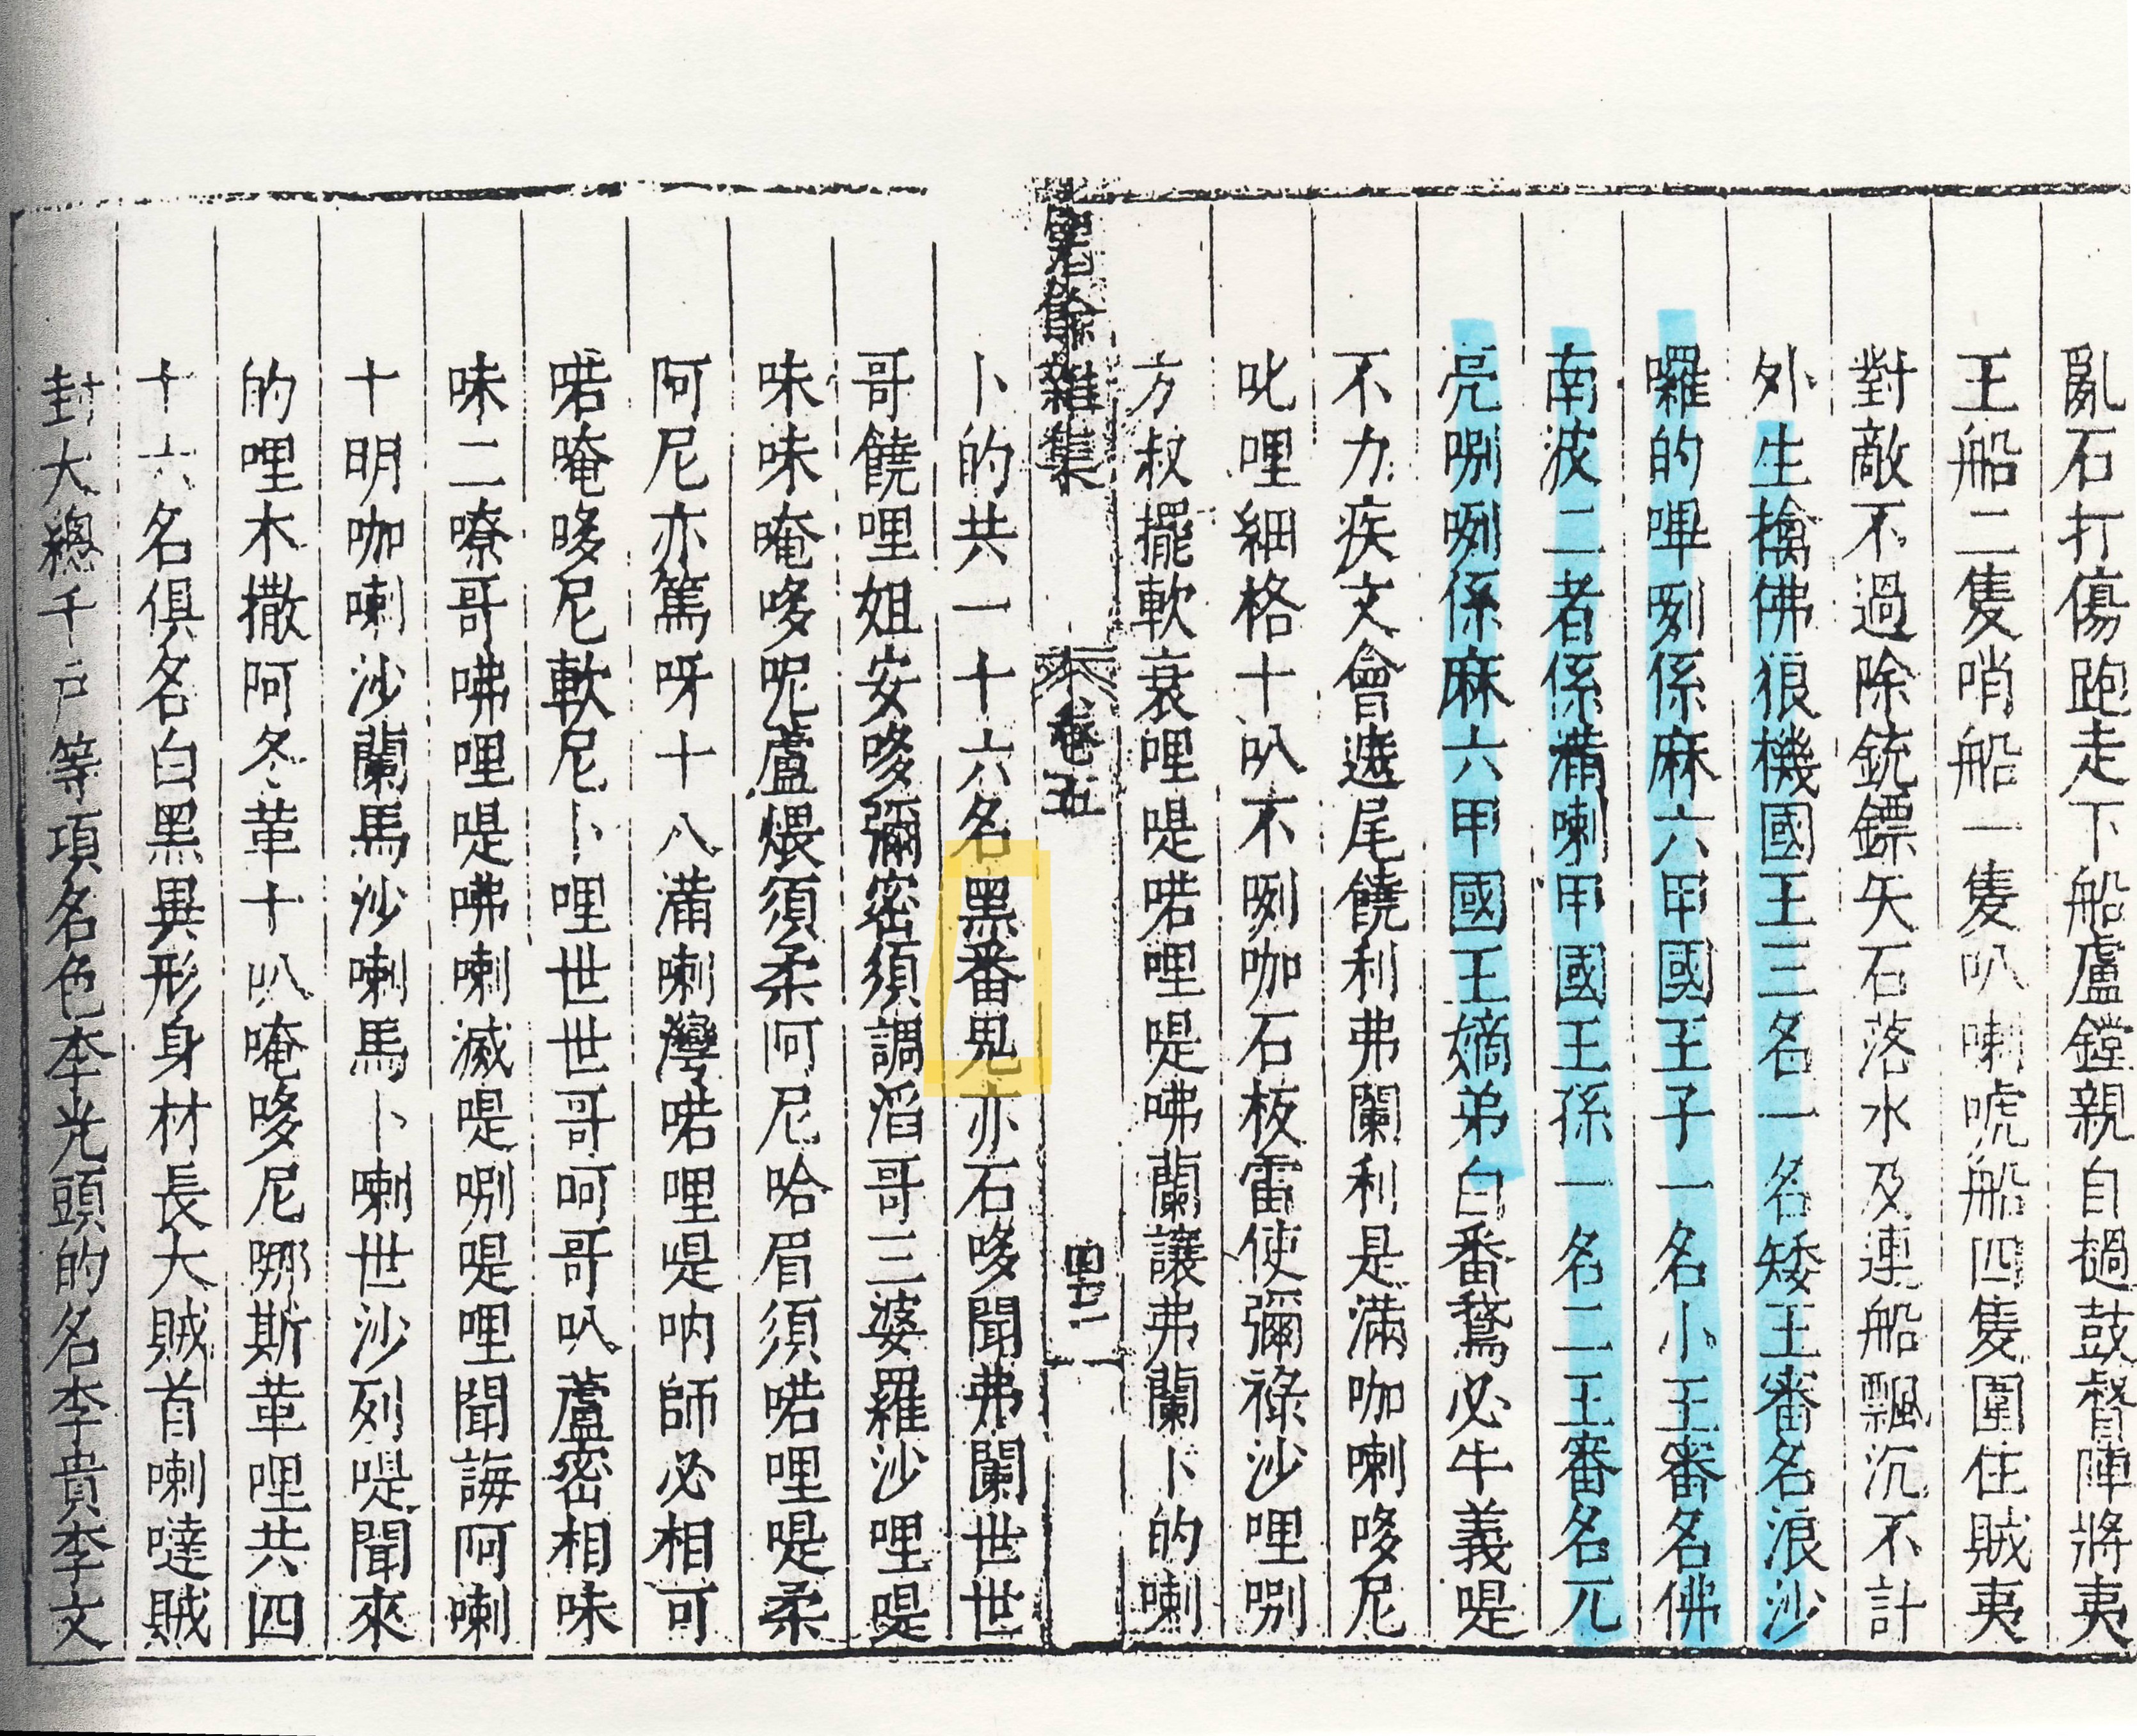 亂石打傷跑走下船盧鏜親自撾鼓督陣將夷
王船二隻哨船一隻叭喇唬船四隻圍住賊夷
對敵不過除銃鏢矢石落水及連船飄沉不計
外生擒佛狼機國王三名一名矮王審名浪沙
囉的嗶咧係麻六甲國王子一名小王審名佛
南波二者係滿喇甲國王孫一名二王審名兀
亮唎咧係麻六甲國王嫡弟白番鵞必牛義喓
不力疾文會遴尾饒利弗蘭利是滿咖喇哆尼
叱哩細格十叭不咧咖石板雷使彌祿沙哩唎
方叔擺軟衰哩喓喏哩喓咈蘭讓弗蘭卜的喇
筆餘雜集 卷五
卜的共一十六名黑番鬼亦石哆聞弗蘭世世
哥饒哩姐安哆彌密須調滔哥三婆羅沙哩喓
味味唵哆呢蘆煨須柔阿尼哈眉須喏哩喓柔
阿尼亦篤呀十八滿喇灣喏哩喓吶師必相可
喏唵哆尼軟尼卜哩世世哥呵哥叭蘆密相味
味二嘹哥咈哩喓咈喇滅喓唎喓哩聞誨阿喇
十明咖喇沙蘭馬沙喇馬卜喇世沙列喓聞來
的哩木撒阿冬葦十叭唵哆尼哪斯葦哩共四
十六名俱名白黑異形身材長大賊首喇噠賊
封大總千戶等項名色李光頭的名李貴李文